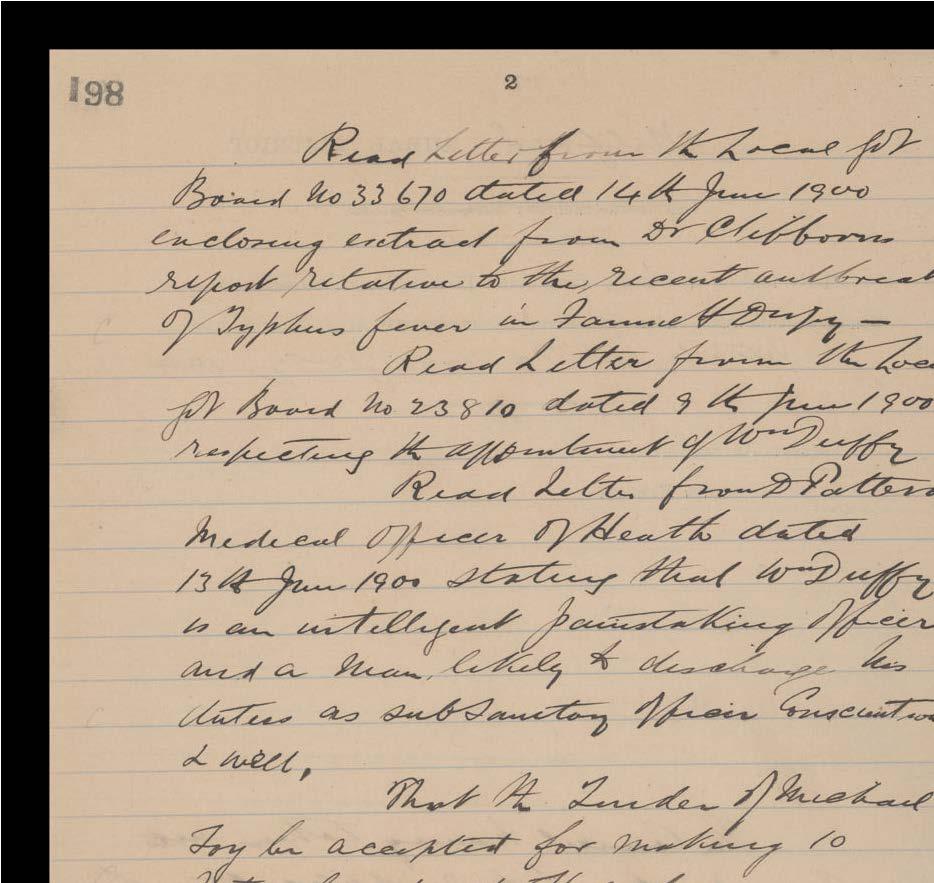 198
2
Read Letter from the Local Govt
Board No 33670 dated 14th June 1900
enclosing extract from Dr Clibborns
report relative to the recent outbreak
of Typhus fever in
Read Letter from the Loca
Govt Board No 23810 dated 9th June 1900
respecting the appointment of Wm Duffy
Read Letter from D Patters
Medical Officer of Heath dated
13th June 1900 stating that Wm Duffy
is an intelligent painstaking Officer
and a man likely to discharge his
duties as subSanitary Officer Conscientiou
& well,
That the Tender of Michael
Foy be accepted for making 10